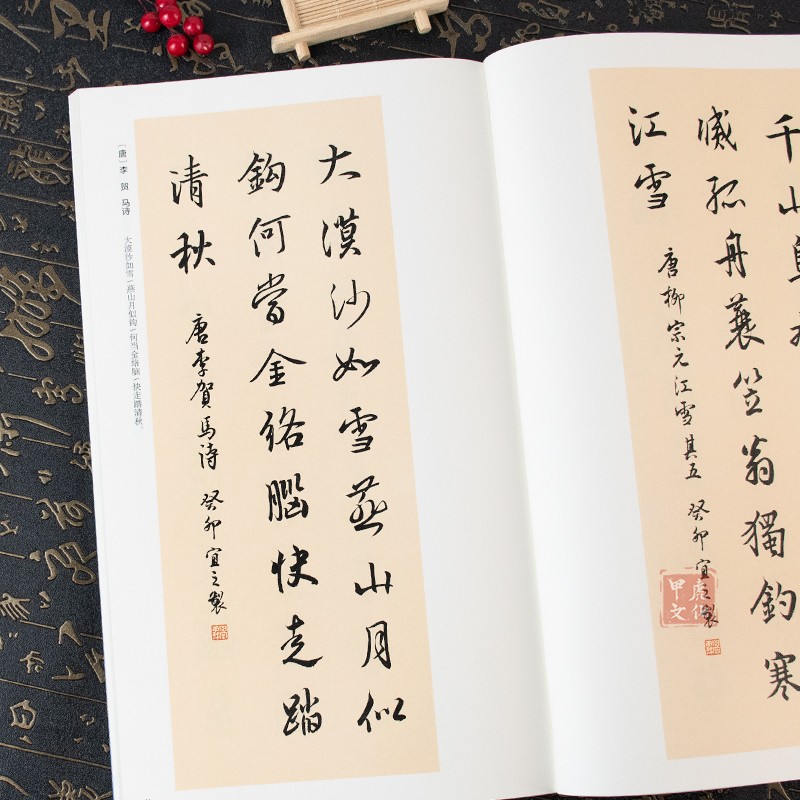 〔唐〕李贺 马诗
大漠沙如雪，燕山月似钩，何当金络脑，快走踏清秋。
大漠沙如雪燕山月似
鈎何當金絡腦快走踏
清秋
唐李賀馬詩 癸卯宜之製
千山鳥
滅孤舟蓑笠翁獨釣寒
江雪
唐柳宗元江雪其五 癸卯宜之製
甲文